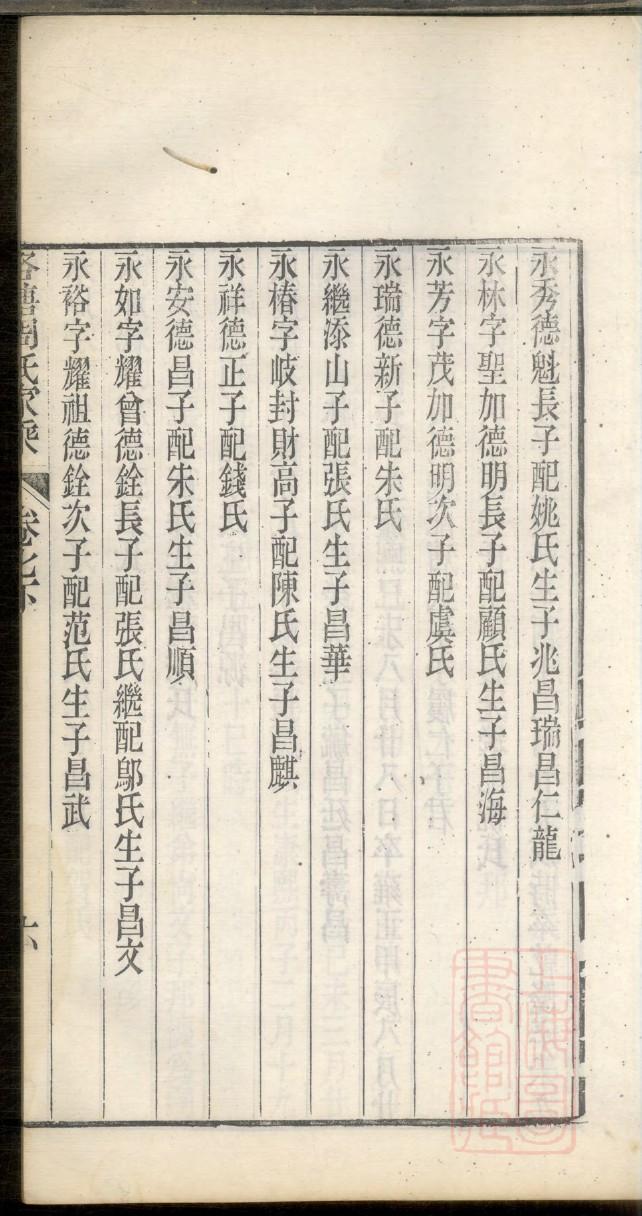 永秀德魁長子配姚氏生子兆昌瑞昌仁龍
永林字聖加德明長子配顧氏生子昌海
永芳字茂加德明次子配虞氏
永瑞德新子配朱氏
永繼添山子配張氏生子昌華
永椿字岐封財高子配陳氏生子昌麒
永祥德正子配錢氏
永安德昌子配朱氏生子昌順
永如字耀曾德銓長子配張氏繼配鄔氏生子昌文
永裕字耀祖德銓次子配范氏生子昌武
塘周氏家乘
卷之下
六